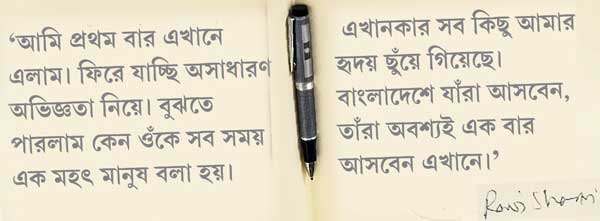 ‘আমি প্রথম বার এখানে
এলাম। ফিরে যাচ্ছি অসাধারণ
অভিজ্ঞতা নিয়ে। বুঝতে
পারলাম কেন ওঁকে সব সময়
এক মহৎ মানুষ বলা হয়।
এখানকার সব কিছু আমার
হৃদয় ছুঁয়ে গিয়েছে।
বাংলাদেশে যাঁরা আসবেন,
তাঁরা অবশ্যই এক বার
আসবেন এখানে।’